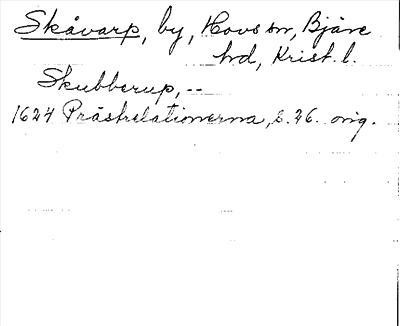 Skåvarp, by, Hovs sn, Bjäre
hd, Krist. l.
Skubberup, --
1624 Prästrelationerna, s. 26. orig.